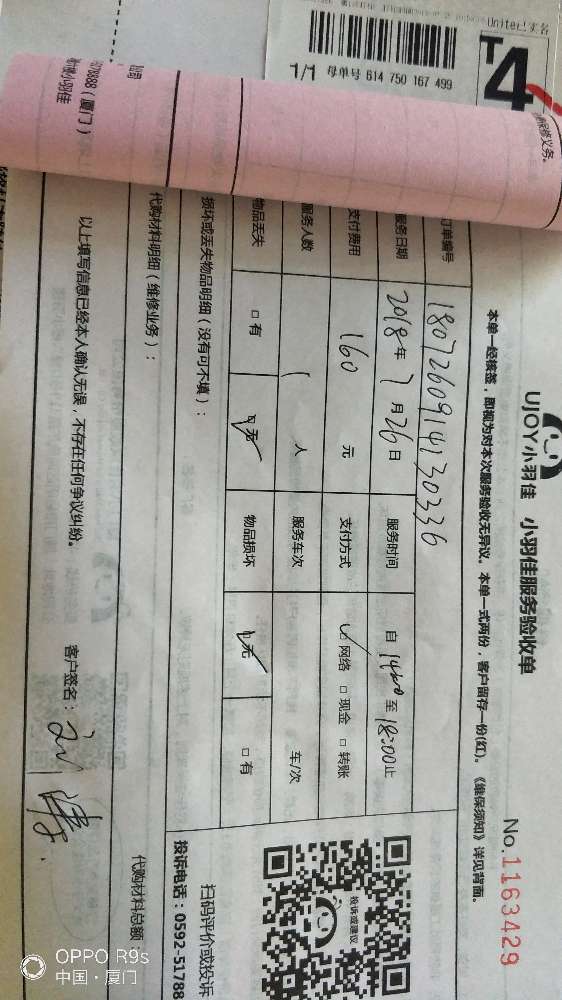 Unitex已实名
T4
1/1 母单号 614 750 167 499
保修义务。
UJOY小羽佳 小羽佳服务验收单
No.1163429
本单一经核签，即视为对本次服务验收无异议。本单一式两份，客户留存一份(红)。《维保须知》详见背面。
订单编号 18072609141130336
服务日期 2018年7月26日 服务时间 自14:00至18:00止
支付费用 160元 支付方式 ☑网络 □现金 □转账
服务人数 1人 服务车次 车/次
物品丢失 □有 ☑无 物品损坏 ☑无 □有
损坏或丢失物品明细（没有可不填）：
代购材料明细（维修业务）：
代购材料总额
以上填写信息已经本人确认无误，不存在任何争议纠纷。 客户签名：
投诉或建议
扫码评价或投诉
投诉电话：0592-51788
78888（厦门）
小羽佳
OPPO R9s
中国·厦门